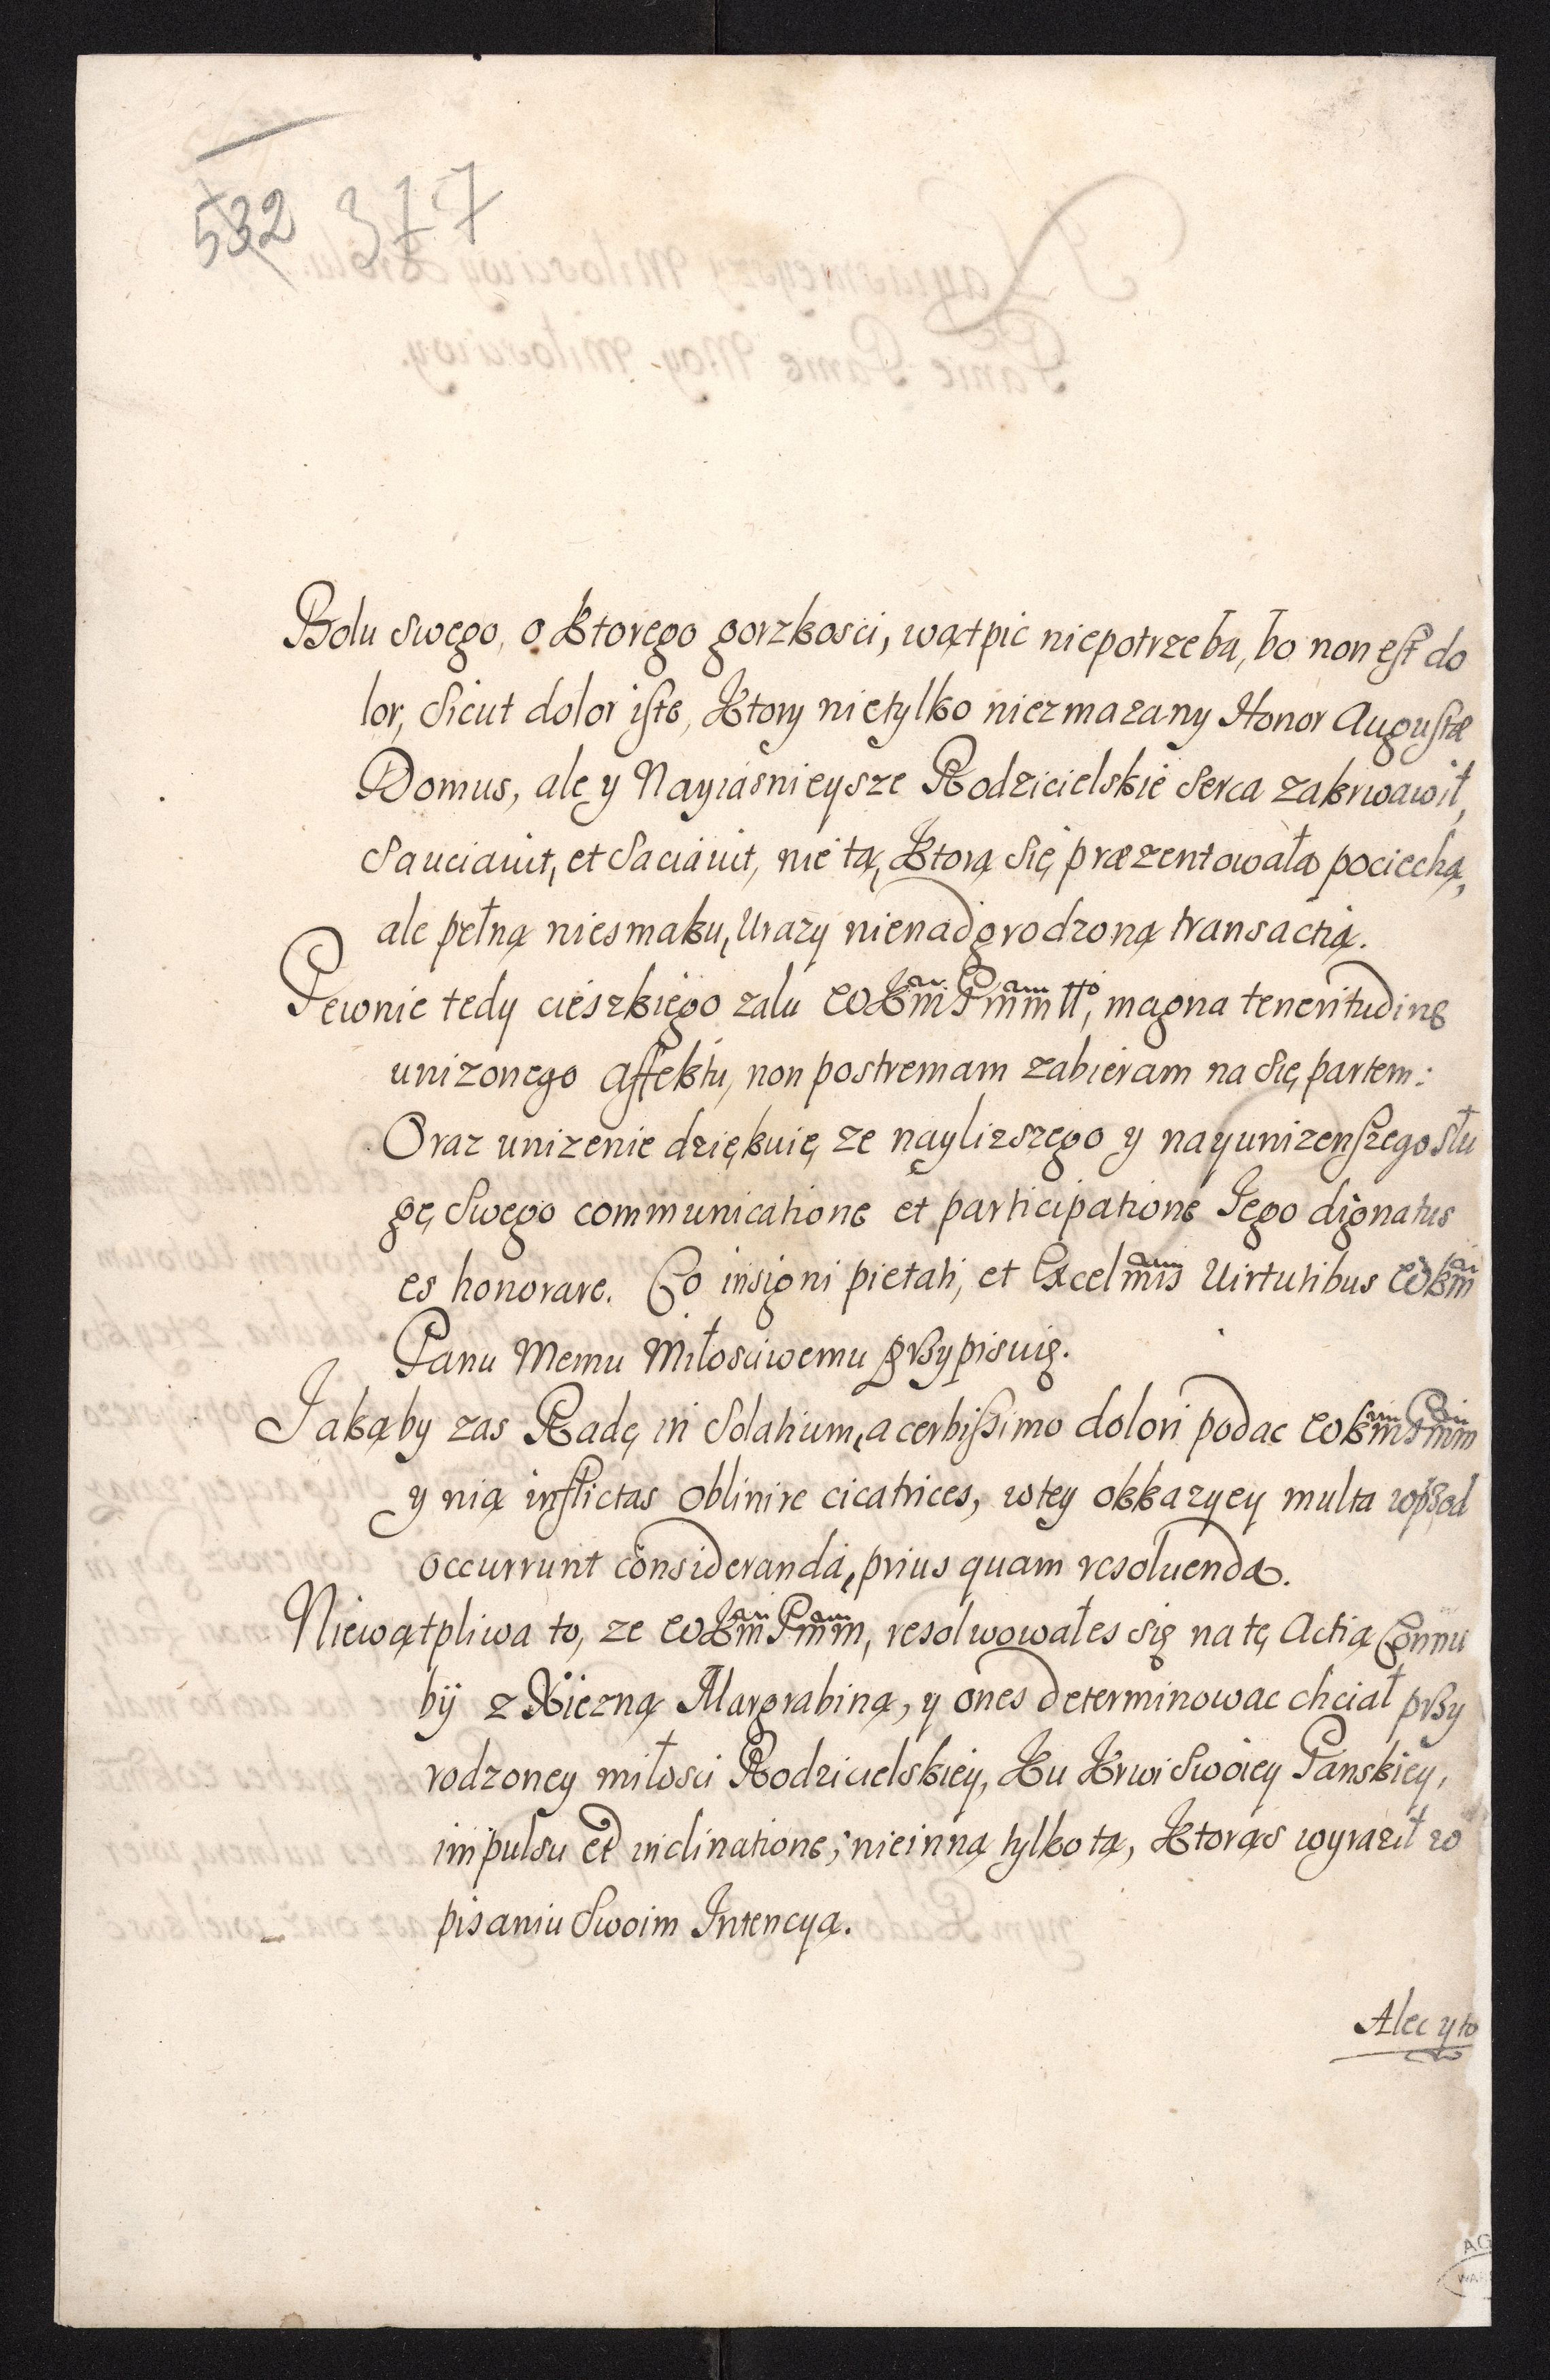 532 377
Bolu swego, o ktorego gorzkosci, wątpic niepotrzeba, bo non est do
lor, sicut dolor iste, ktory nietylko niezmazany Honor Augustæ
Domus, ale y Nayiásnieysze Rodzicielskie serca zakrwawił,
sauciauit, et saciauit, nie tą, ktorą się præzentowała pociechą,
ale pełną niesmaku, Urazy nienadgrodzoną transactią.
Pewnie tedy cięszkiego zalu WKm Pmm tto, magna teneritudine
unizonego affektu, non postremam zabieram na się partem:
Oraz unizenie dziękuię ze naylizszego y nayunizenszego słu
gę swego communicatione et participatione Jego dignatus
es honorare. Co insigni pietati, et Excelmis Uirtutibus WKm
Panu Memu Miłosciwemu przypisuię.
Jakąby zas Radę in solatium, acerbissimo dolori podac WKm Pmm
y nią inflictas oblinire cicatrices, wtey okkazyey multa wprzod
occurrunt consideranda, prius quam resoluenda.
Niewątpliwa to, ze WKm Pmm, resolwowałes się na tę Actią Connu
bij z Xiezną Margrabiną, y ones determinowac chciał przy
rodzoney miłosci Rodzicielskiey, Ku Krwi swoiey Panskiey,
impulsu et inclinatione; nieinną tylko tą, ktorąs wyraził w
pisaniu swoim Intencyą.
Alec y to